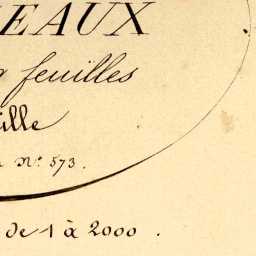 EAUX
feuilles
ille
N° 573.
de 1 à 2000.